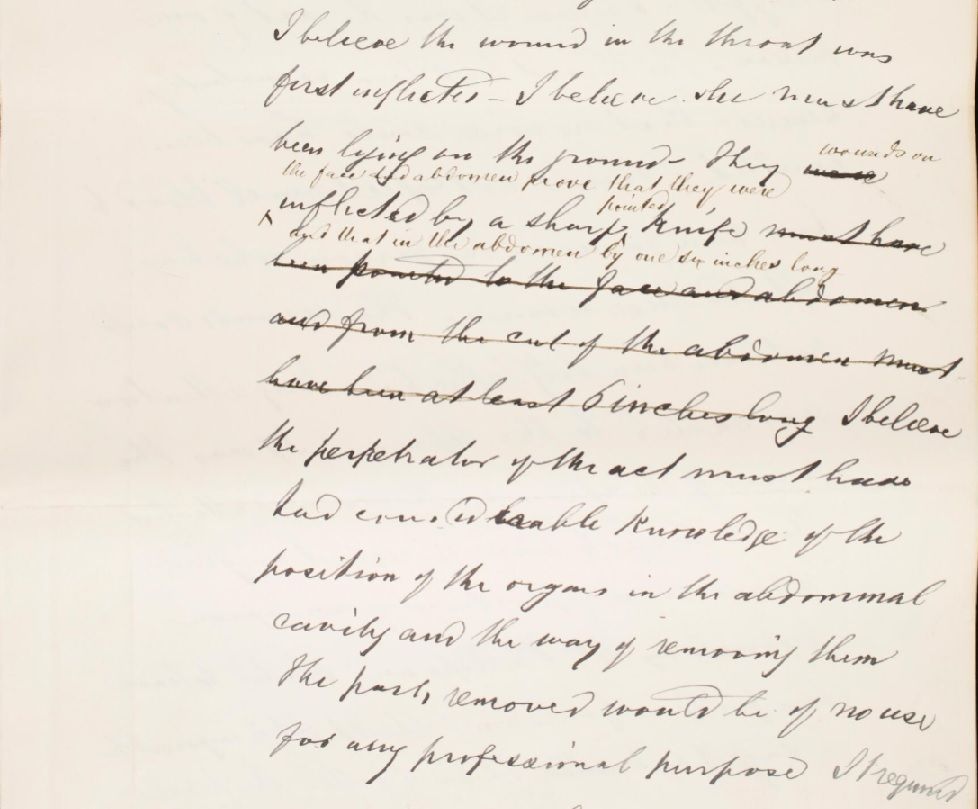 I believe the wound in the throat was
first inflicted – I believe she must have
been lying on the ground – They were
wounds on
the face and abdomen prove that they were
inflicted by a sharp pointed knife must have
and that in the abdomen by one six inches long
been pointed to the face and abdomen
and from the cut of the abdomen must
have been at least 6 inches long I believe
the perpetrator of the act must have
had considerable knowledge of the
position of the organs in the abdominal
cavity and the way of removing them
The parts removed would be of no use
for any professional purpose It required